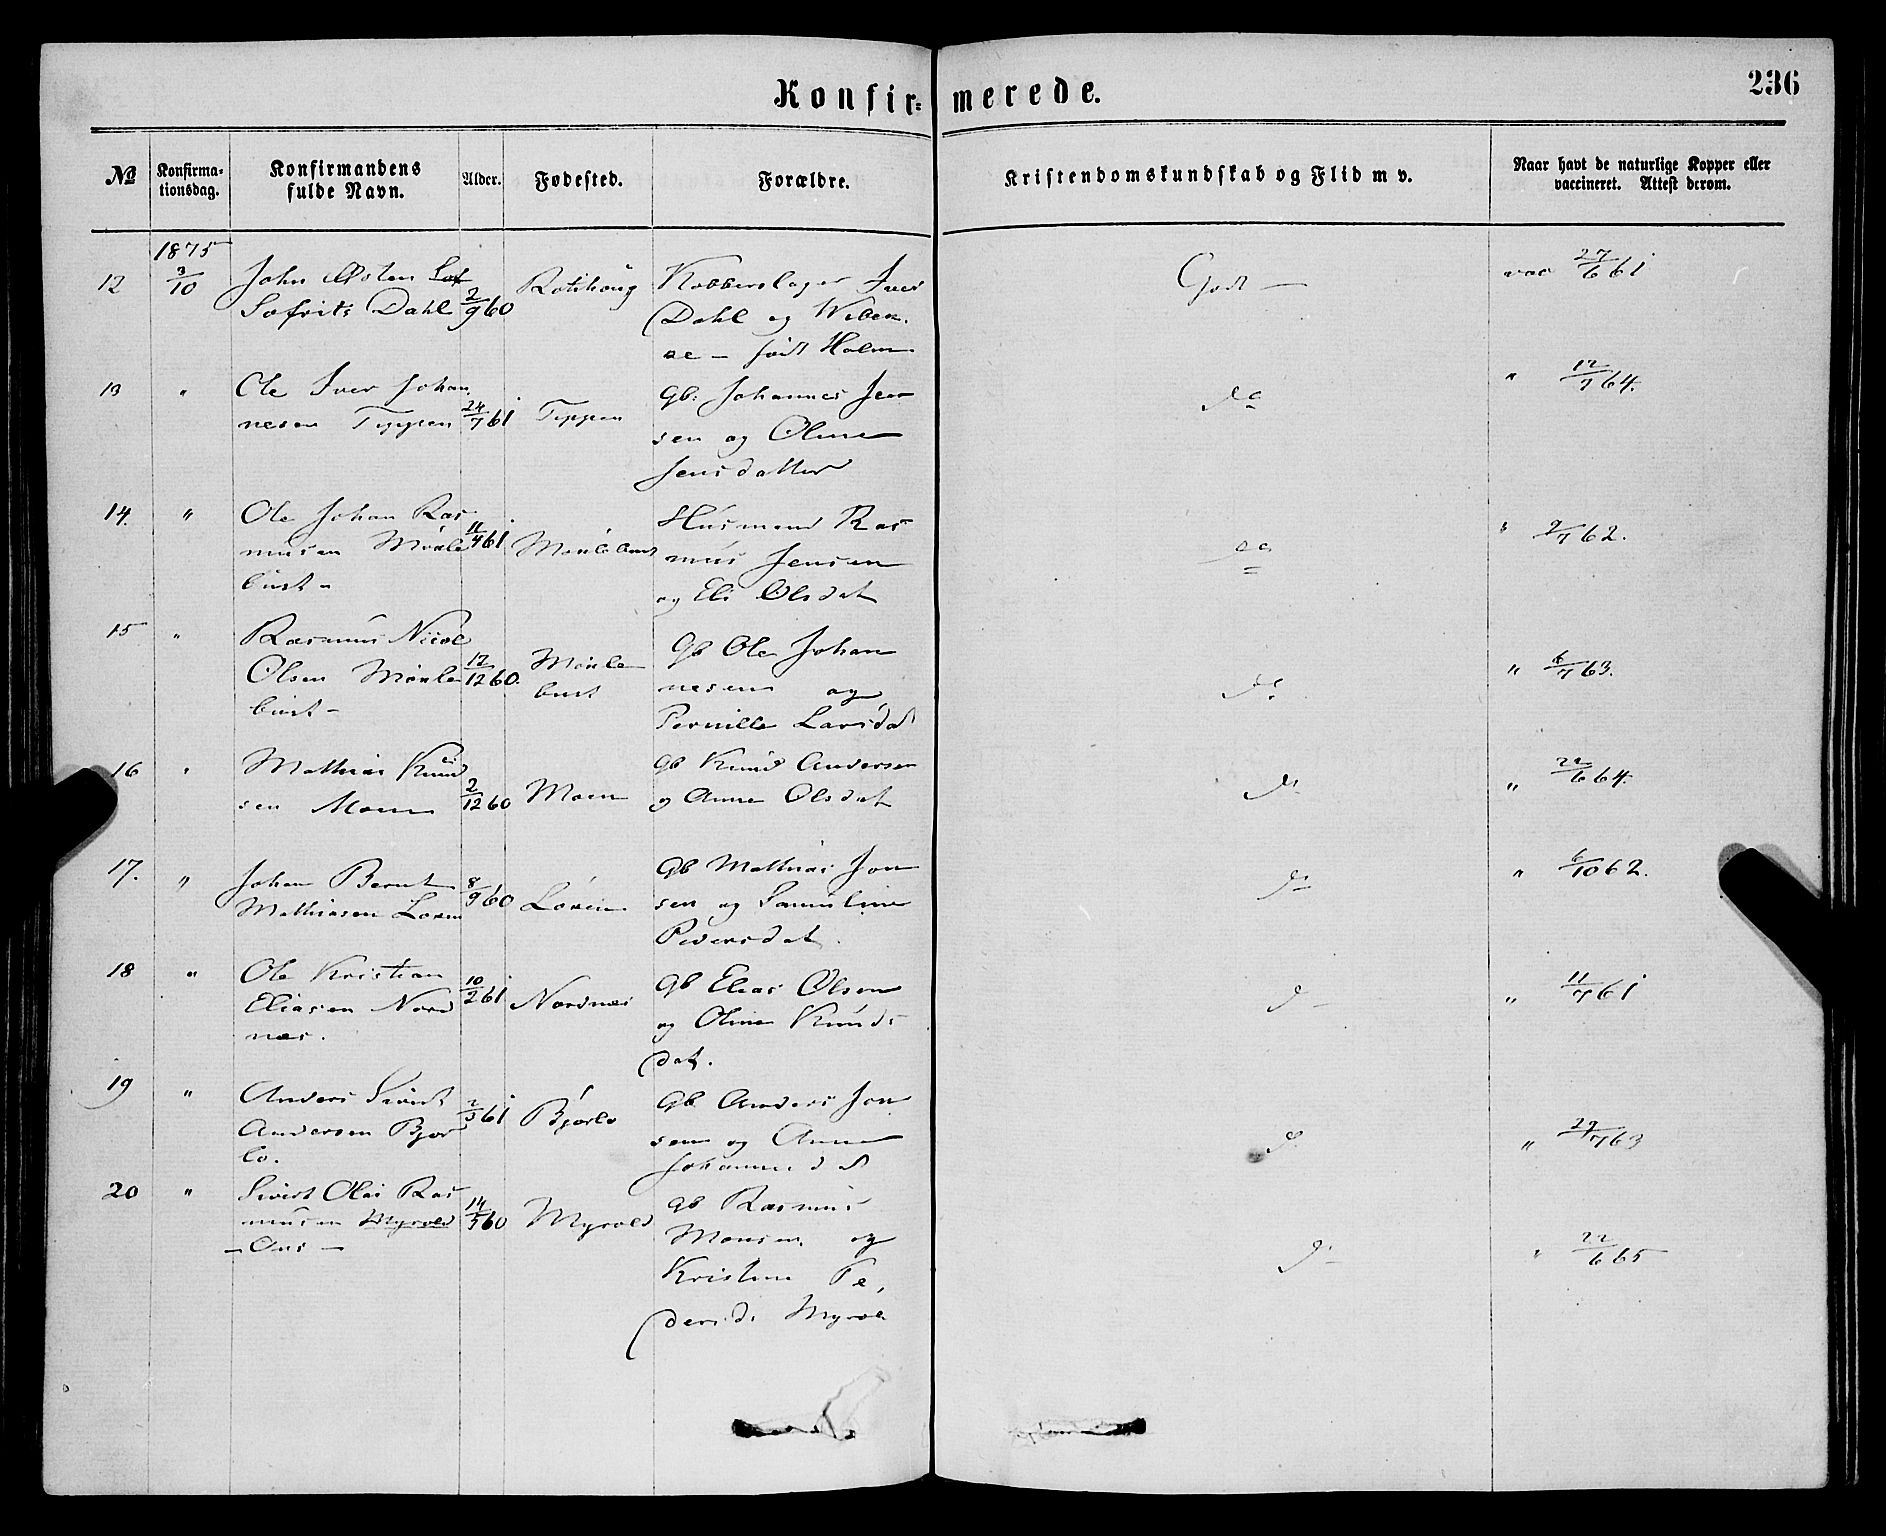 Konfirmerede.
236
№
Konfirma-
tionsdag.
Konfirmandens
fulde Navn.
Alder.
Fødested.
Forældre.
Kristendomskundskab og Flid m v.
Naar havt de naturlige Kopper eller
vaccineret. Attest derom.
1875
12 3/10 John Østen
Sofrits Dahl 2/9 60 Kobberslager Iver
Dahl og Wibek-
ke - født Holm
Godt -
vac 27/6 61
13 " Ole Iver Johan
nesen Teppen 24/7 61 Teppen
Gb: Johannes Jen
sen og Oline
Jensdatter
do
" 12/7 64.
14. " Ole Johan Ras
musen Mørle
bust - 11/4 61
Husmand Ras
mus Jensen
og Eli Olsdat
do
" 2/7 62.
15 " Rasmus Nicol
Olsen Mørle
bust - 12/12 60. Mørle
bust
Gb Ole Johan
nesen og
Pernille Larsdat
do
" 6/7 63.
16 " Mathias Knud
sen Moen 2/12 60 Moen
Gb Knud Andersen
og Anne Olsdat
do
" 22/6 64.
17. " Johan Bernt
Mathiasen Løven 8/9 60 Løven
Gb Mathias Jon
sen og Samuline
Pedersdat.
do
" 6/10 62.
18 " Ole Kristian
Eliasen Nord
næs. 10/2 61 Nordnæs
Gb Elias Olsen
og Oline Knuds
dat.
d -
" 11/7 61
19 " Anders Sivert
Andersen Bjør
lo. 2/3 61 Bjørlo
Gb Anders Jon
sen og Anne
Johannesd
d
" 29/7 63
20 " Sivert Olai Ras
musen Myrvold
14/3 60 Myrvold
Gb Rasmus
Monsen og
Kristine Pe,
dersd. Myrvol
d -
" 22/6 65